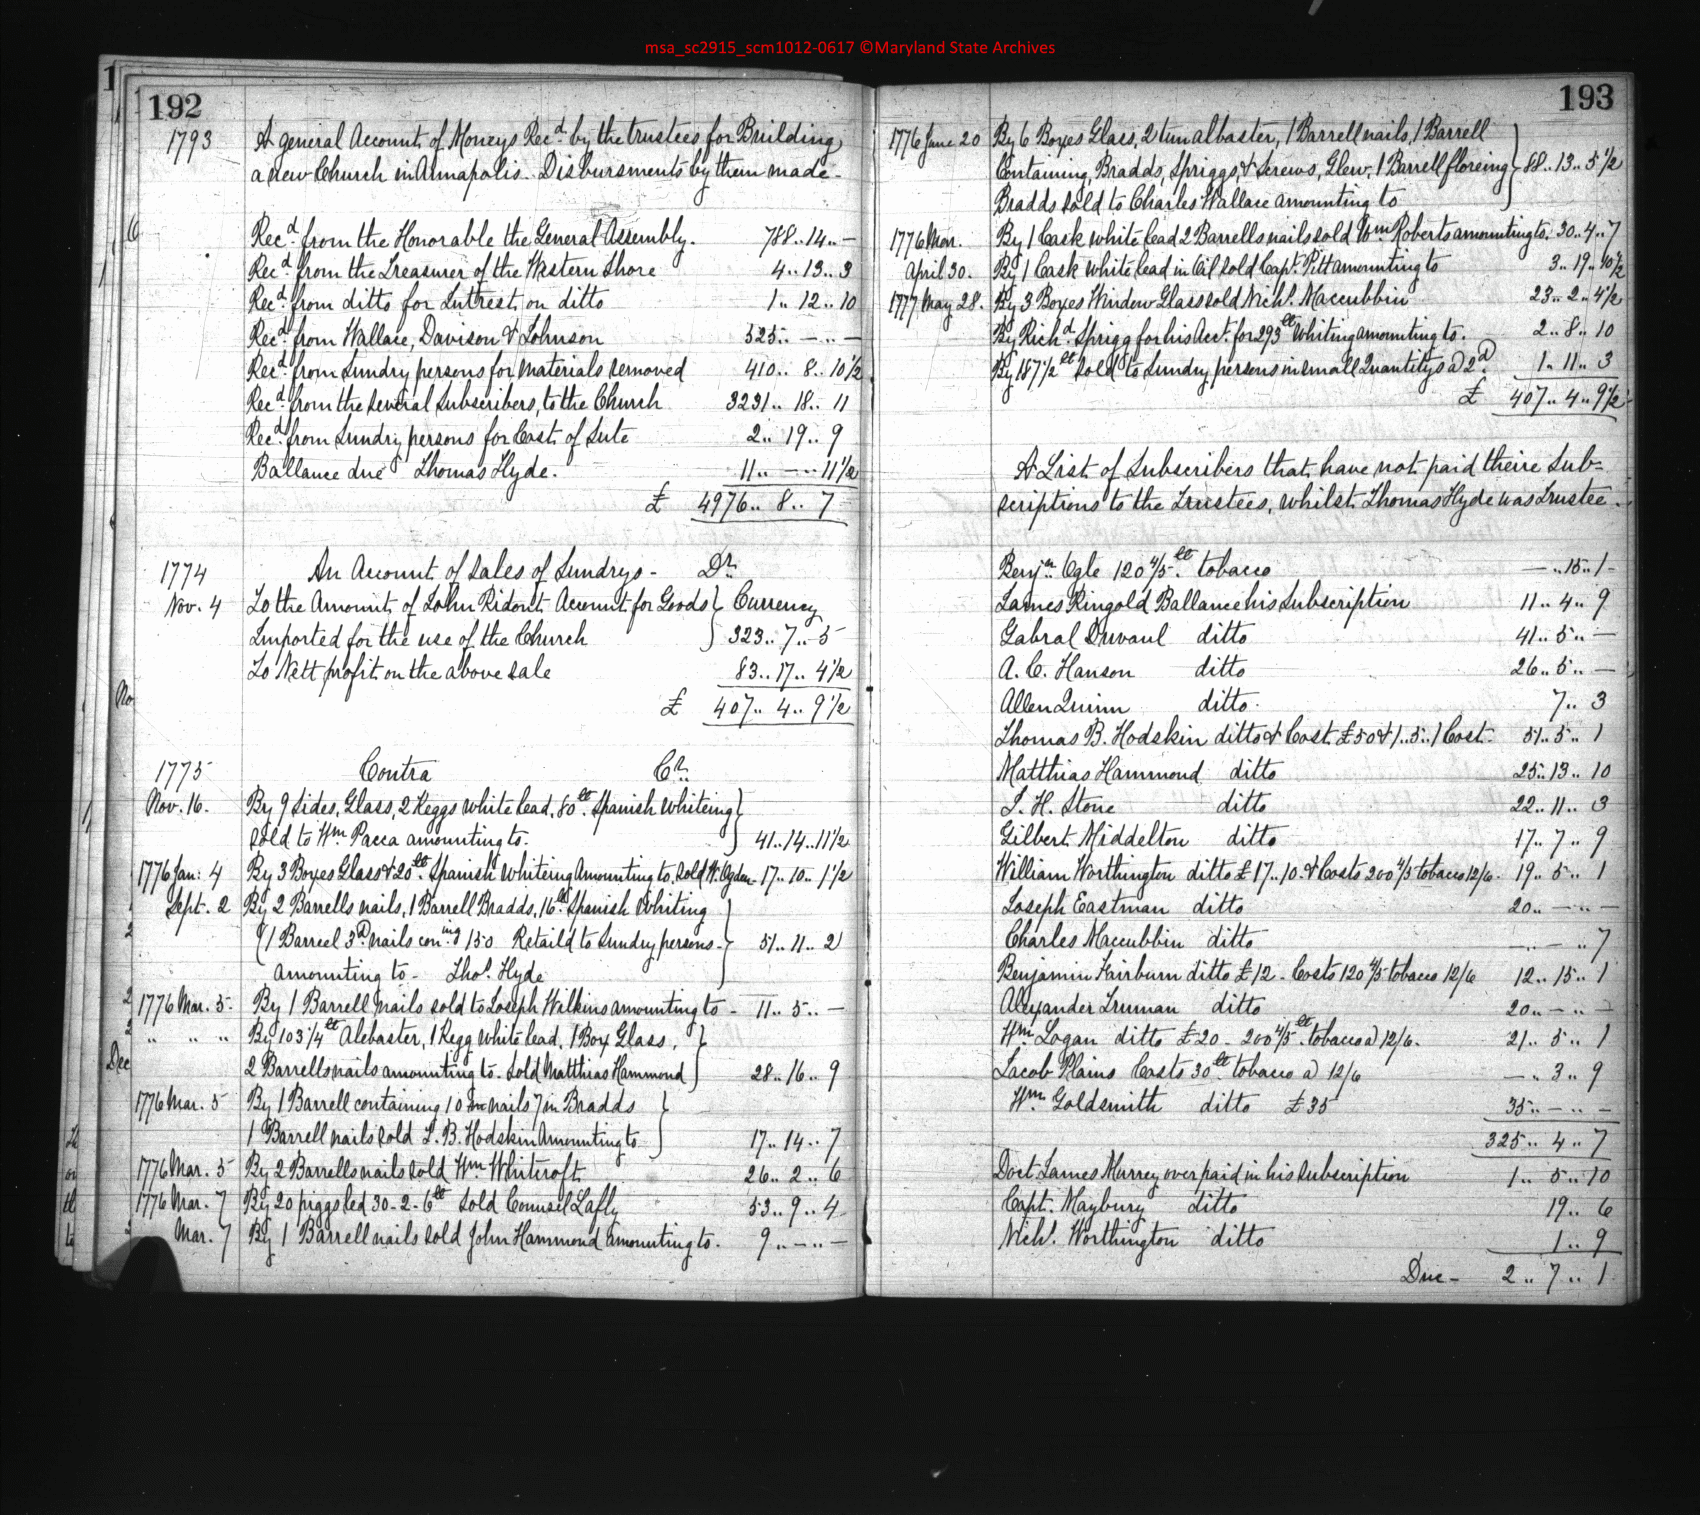 msa_sc2915_scm1012-0617 ©Maryland State Archives
192
1793 A general Account of Moneys Recd by the trustees for Building
a new Church in Annapolis. Disbursments by them made -
Recd from the Honorable the General Assembly. 788..14..—
Recd from the Treasurer of the Western Shore 4..13..3
Recd from ditto for Intrest on ditto 1..12..10
Recd from Wallace, Davison & Johnson 525..—..—
Recd from Sundry persons for materials removed 410..8..10½
Recd from the Several Subscribers, to the Church 3231..18..11
Recd from Sundry persons for Cost of Sute 2..19..9
Ballance due Thomas Hyde. 11..—..11½
£ 4976..8..7
1774 An Account of Sales of Sundrys - Dr.
Nov. 4 To the Amount of John Ridout Account for Goods } Currency
Imported for the use of the Church } 323..7..5
To Nett profit on the above sale 83..17..4½
£ 407..4..9½
1775 Contra Cr.
Nov. 16. By 9 Sides, Glass, 2 Keggs white lead, 80 lt Spanish Whiteing }
sold to Wm. Pacca amounting to. } 41..14..11½
1776 Jan: 4 By 3 Boxes Glass & 20 lt Spanish Whiteing Amounting to. Sold W. Ogden - 17..10..1½
Sept. 2 By 2 Barrells nails, 1 Barrell Bradds, 16 lt Spanish Whiting }
(1 Barrel 3d nails coning 150 Retaild to Sundry persons - } 51..11..2
amounting to - Thos. Hyde
1776 Mar. 5. By 1 Barrell nails sold to Joseph Wilkins amounting to - 11..5..—
" " " By 103¼ lt Alebaster, 1 Kegg white lead, 1 Box Glass, }
2 Barrells nails amounting to. Sold Matthias Hammond } 28..16..9
1776 Mar. 5 By 1 Barrell containing 10 m nails 7 m Bradds }
1 Barrell nails sold T. B. Hodskin Amounting to } 17..14..7
1776 Mar. 5 By 2 Barrells nails sold Wm. Whitcroft 26..2..6
1776 Mar. 7 By 20 piggs led 30-2-6 lt sold Counsel Lafly 53..9..4
Mar. 7 By 1 Barrell nails sold John Hammond amounting to. 9..—..—
193
1776 June 20 By 6 Boxes Glass, 2 tun albaster, 1 Barrell nails, 1 Barrell
Containing, Bradds, Spriggs, & Screws, Glew, 1 Barrell floreing } 88..13..5½
Bradds sold to Charles Wallace amounting to
1776 Mar. By 1 Cask white lead 2 Barrells nails sold Wm Roberts amounting to. 30..4..7
April 30. By 1 Cask white lead in Oil sold Capt. Pitt amounting to 3..19..10½
1777 May 28. By 3 Boxes Window Glass sold Nichs. Maccubbin 23..2..4½
By Richd. Sprigg for his Acct. for 293 lt Whiting amounting to. 2..8..10
By 187½ lt sold to Sundry persons in small Quantitys a 2d. 1..11..3
£ 407..4..9½
A List of Subscribers that have not paid theire Sub-
scriptions to the Trustees, whilst Thomas Hyde was Trustee.
Benjn. Ogle 120 4/5 lt tobacco —..15..1
James Ringold Ballance his Subscription 11..4..9
Gabral Duvaul ditto 41..5..—
A. C. Hanson ditto 26..5..—
Allen Quinn ditto. 7..3
Thomas B. Hodskin ditto & Cost £50 & 1..5..1 Cost. 51..5..1
Matthias Hammond ditto 25..13..10
T. H. Stone ditto 22..11..3
Gilbert Middelton ditto 17..7..9
William Worthington ditto £17..10. & Costs 200 4/5 tobacco 12/6. 19..5..1
Joseph Eastman ditto 20..—..—
Charles Maccubbin ditto —..—..7
Benjamin Fairburn ditto £12 - Costs 120 4/5 tobacco 12/6 12..15..1
Alexander Truman ditto 20..—..—
Wm. Logan ditto £20 - 200 4/5 lt tobacco a 12/6. 21..5..1
Jacob Plains Costs 30 lt tobacco a 12/6 —..3..9
Wm. Goldsmith ditto £35 35..—..—
325..4..7
Doct. James Murrey over paid in his subscription 1..5..10
Capt. Maybury ditto 19..6
Nichs. Worthington ditto 1..9
Due - 2..7..1